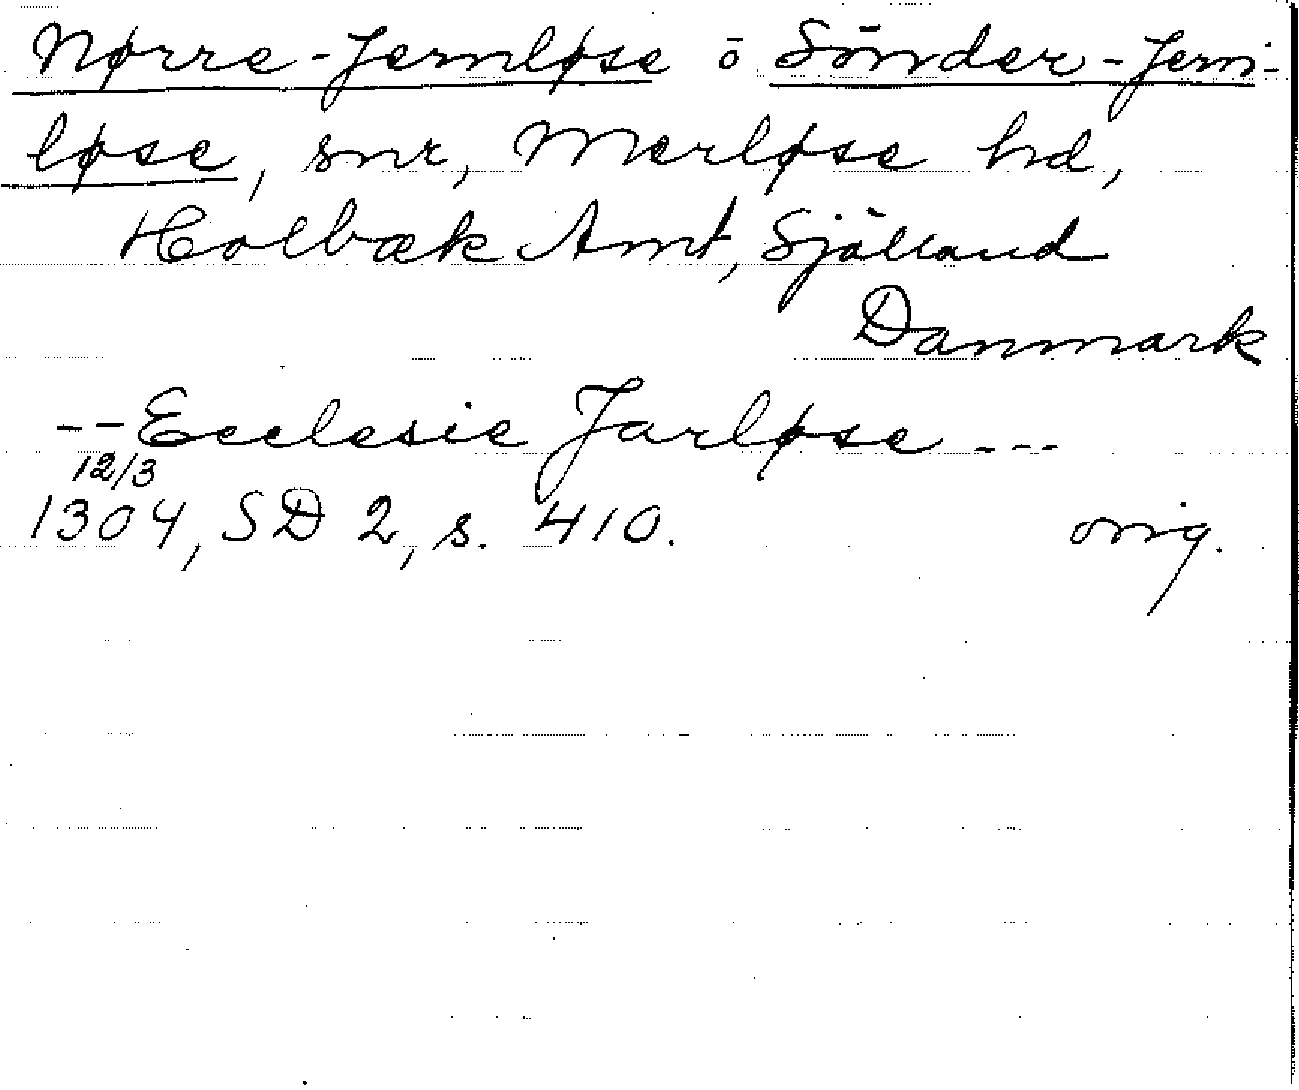 Nørre-Jernløse o Sönder-Jern-
løse, snr, Merløse hd,
Holbæk Amt, Själland
Danmark
--Ecclesie Jarløse ---
12/3
1304, SD 2, s. 410. orig.